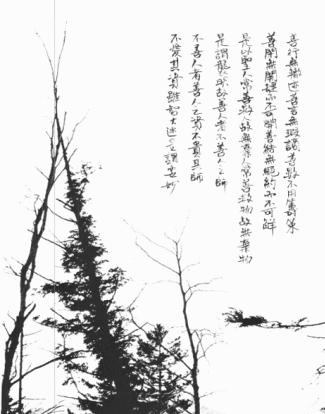 善行無轍迹善言無瑕讁善數不用籌策
善閉無關楗而不可開善結無繩約而不可解
是以聖人常善救人故無棄人常善救物故無棄物
是謂襲明故善人者不善人之師
不善人者善人之資不貴其師
不愛其資雖智大迷是謂要妙